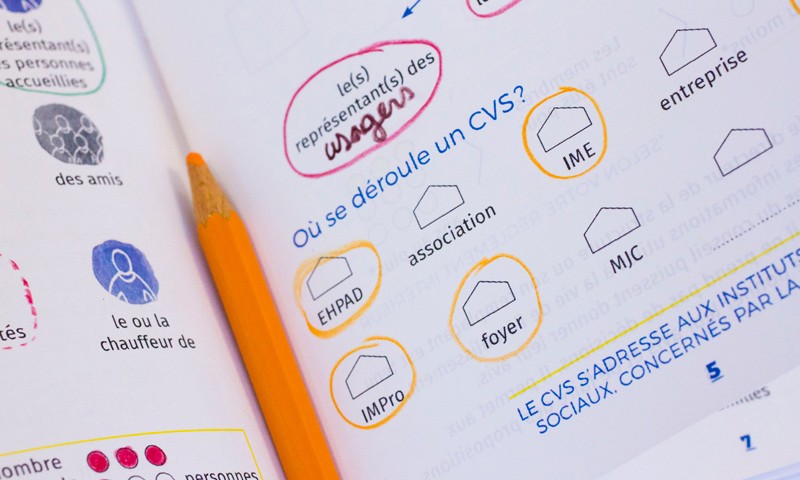 le(s)
représentant(s)
s personnes
accueillies
des amis
le ou la
chauffeur de
tés
ombre
personnes
le(s)
représentant(s) des
usagers
Où se déroule un CVS?
entreprise
IME
association
MJC
EHPAD
foyer
IMPro
LE CVS S'ADRESSE AUX INSTITUTS
SOCIAUX. CONCERNÉS PAR LA
5
7